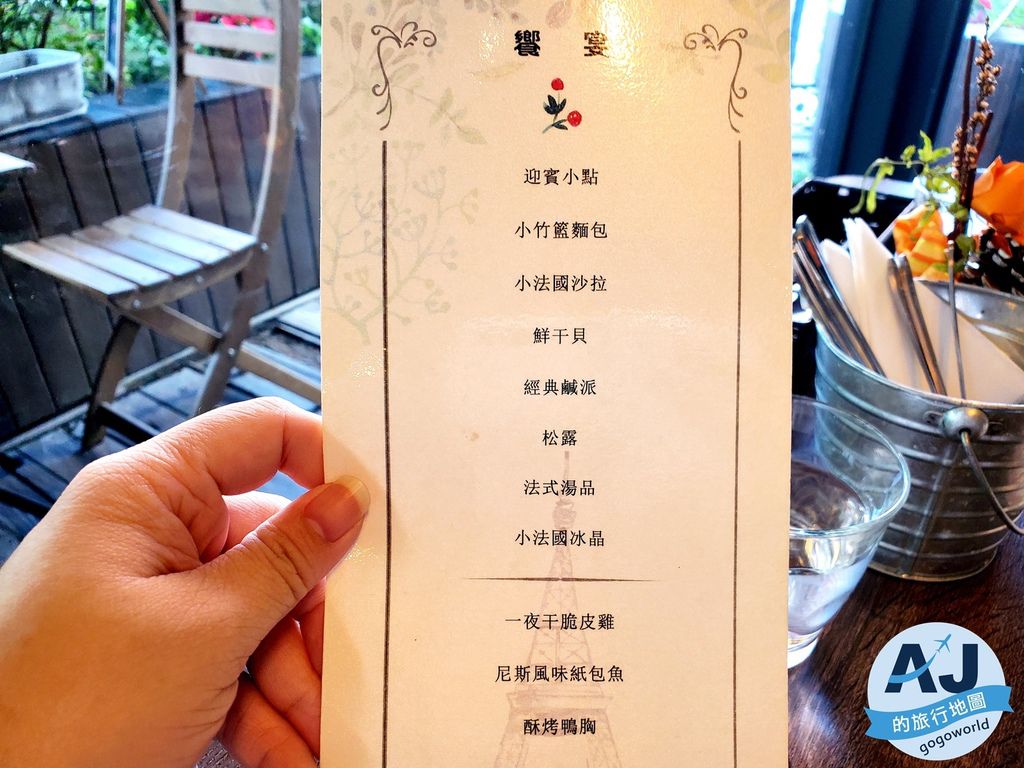 饗宴
迎賓小點
小竹籃麵包
小法國沙拉
鮮干貝
經典鹹派
松露
法式湯品
小法國冰晶
一夜干脆皮雞
尼斯風味紙包魚
酥烤鴨胸
AJ
的旅行地圖
gogoworld